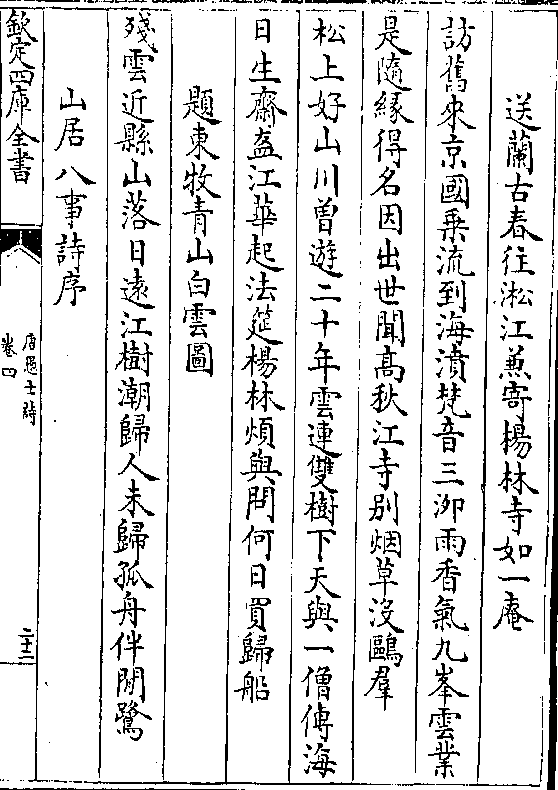 送蘭古春往淞江兼寄楊林寺如一庵
訪舊來京國乗流到海濆梵音三泖雨香氣九峯雲業
是隨緣得名因出世聞髙秋江寺别烟草没鷗羣
松上好山川曽遊二十年雲連雙樹下天與一僧傳海
日生齋盋江華起法筵楊林煩與問何日買歸船
題東牧青山白雲圖
殘雲近縣山落日遠江樹潮歸人未歸孤舟伴閒鷺
山居八事詩序
欽定四庫全書
唐愚士詩
卷四
二十二